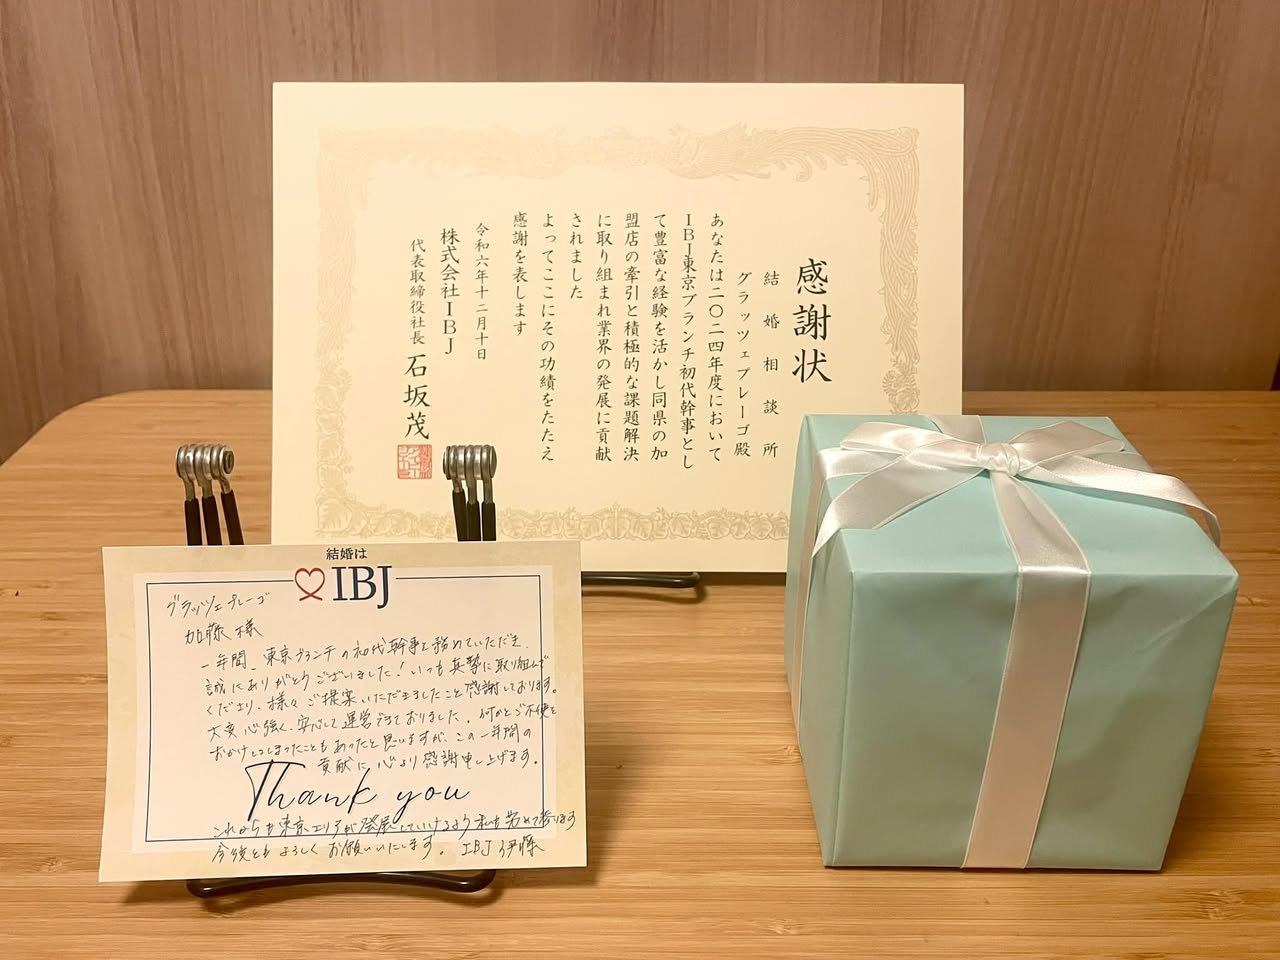 感謝状
結婚相談所
グラッツェプレーゴ殿
あなたは二〇二四年度において
IBJ東京ブランチ初代幹事とし
て豊富な経験を活かし同県の加
盟店の牽引と積極的な課題解決
に取り組まれ業界の発展に貢献
されました
よってここにその功績をたたえ
感謝を表します
令和六年十二月十日
株式会社IBJ
代表取締役社長 石坂茂
結婚は
IBJ
グラッツェプレーゴ
加藤様
一年間、東京ブランチの初代幹事を務めていただき、
誠にありがとうございました！いつも真摯に取り組んで
くださり、様々ご提案いただきましたこと感謝しております。
大変心強く、安心して運営できておりました。何かとご不便を
おかけしてしまったこともあったと思いますが、この一年間の
貢献に心より感謝申し上げます。
Thank you
これからも東京エリアが発展していけるよう私も努めて参ります
今後ともよろしくお願いいたします。 IBJ 伊藤